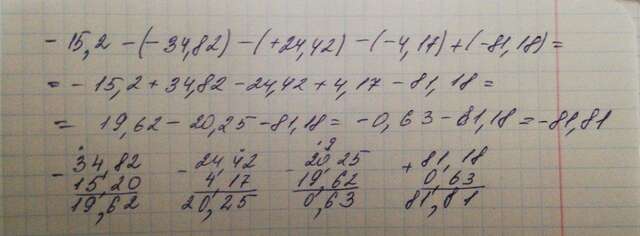 - 15,2 - (- 34,82) - (+24,42) - (-4,17) + (-81,18) =
= - 15,2 + 34,82 - 24,42 + 4,17 - 81,18 =
= 19,62 - 20,25 - 81,18 = -0,63 - 81,18 = -81,81
- 34,82 - 24,42 - 20,25 + 81,18
15,20 4,17 19,62 0,63
19,62 20,25 0,63 81,81